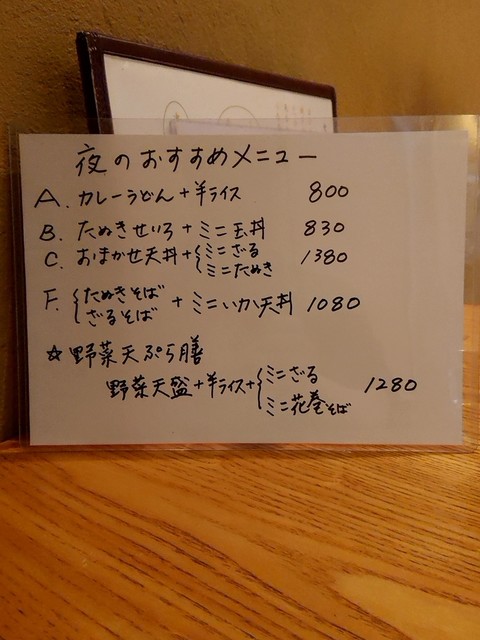 夜のおすすめメニュー
A. カレーうどん+半ライス 800
B. たぬきせいろ+ミニ玉丼 830
C. おまかせ天丼+{ミニざる ミニたぬき 1380
F. {たぬきそば ざるそば + ミニいか天丼 1080
☆野菜天ぷら膳
野菜天盛+半ライス+{ミニざる ミニ花巻そば 1280